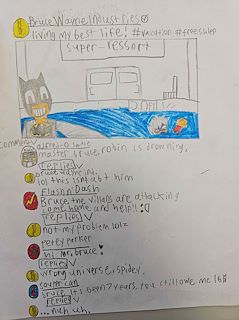 Bruce Wayne Industries
living my best life! #vacation #freeswep
super-ressort
Pool
comments
alfred-o sauce
master bruce, robin is drowning,
replies
bruce wayne ind.
lol this isnt abt him
Flash n' Dash
Bruce the villans are attacking
come home and help!!
replies
not my problem lolz
petey parker
hi Mr. bruce!
replies
wrong universe, spidey.
bruce, its been 7 years, you still owe me 16
replies
...nuh uh.